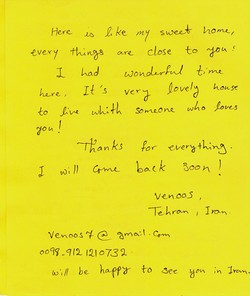 Here is like my sweet home,
every things are close to you!
I had wonderful time
here. It's very lovely house
to live whith someone who loves
you!
Thanks for everything.
I will come back soon!
venoos,
Tehran, Iran
venoos7@gmail.com
0098-912 1210732
will be happy to see you in Iran